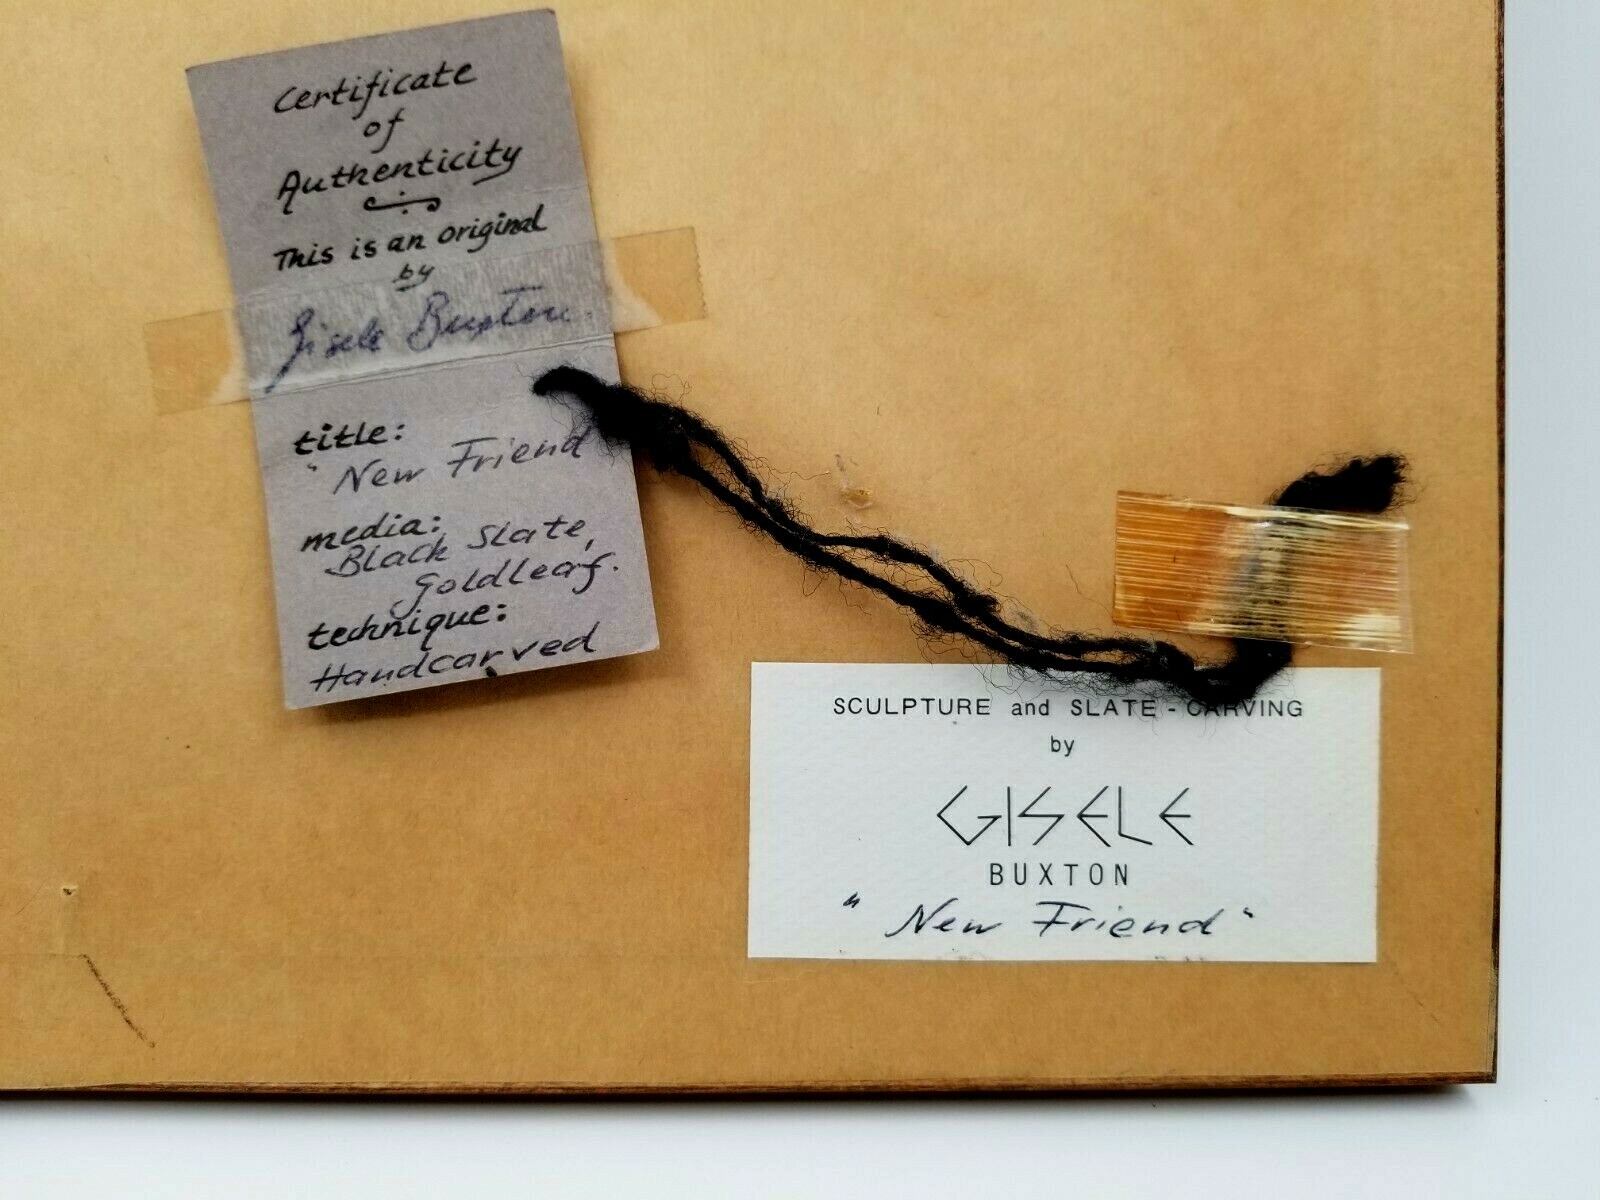 Certificate
of
Authenticity
This is an original
by
Gisele Buxton.
title:
"New Friend
media:
Black Slate,
Goldleaf.
technique:
Handcarved
SCULPTURE and SLATE-CARVING
by
GISELE
BUXTON
"New Friend"